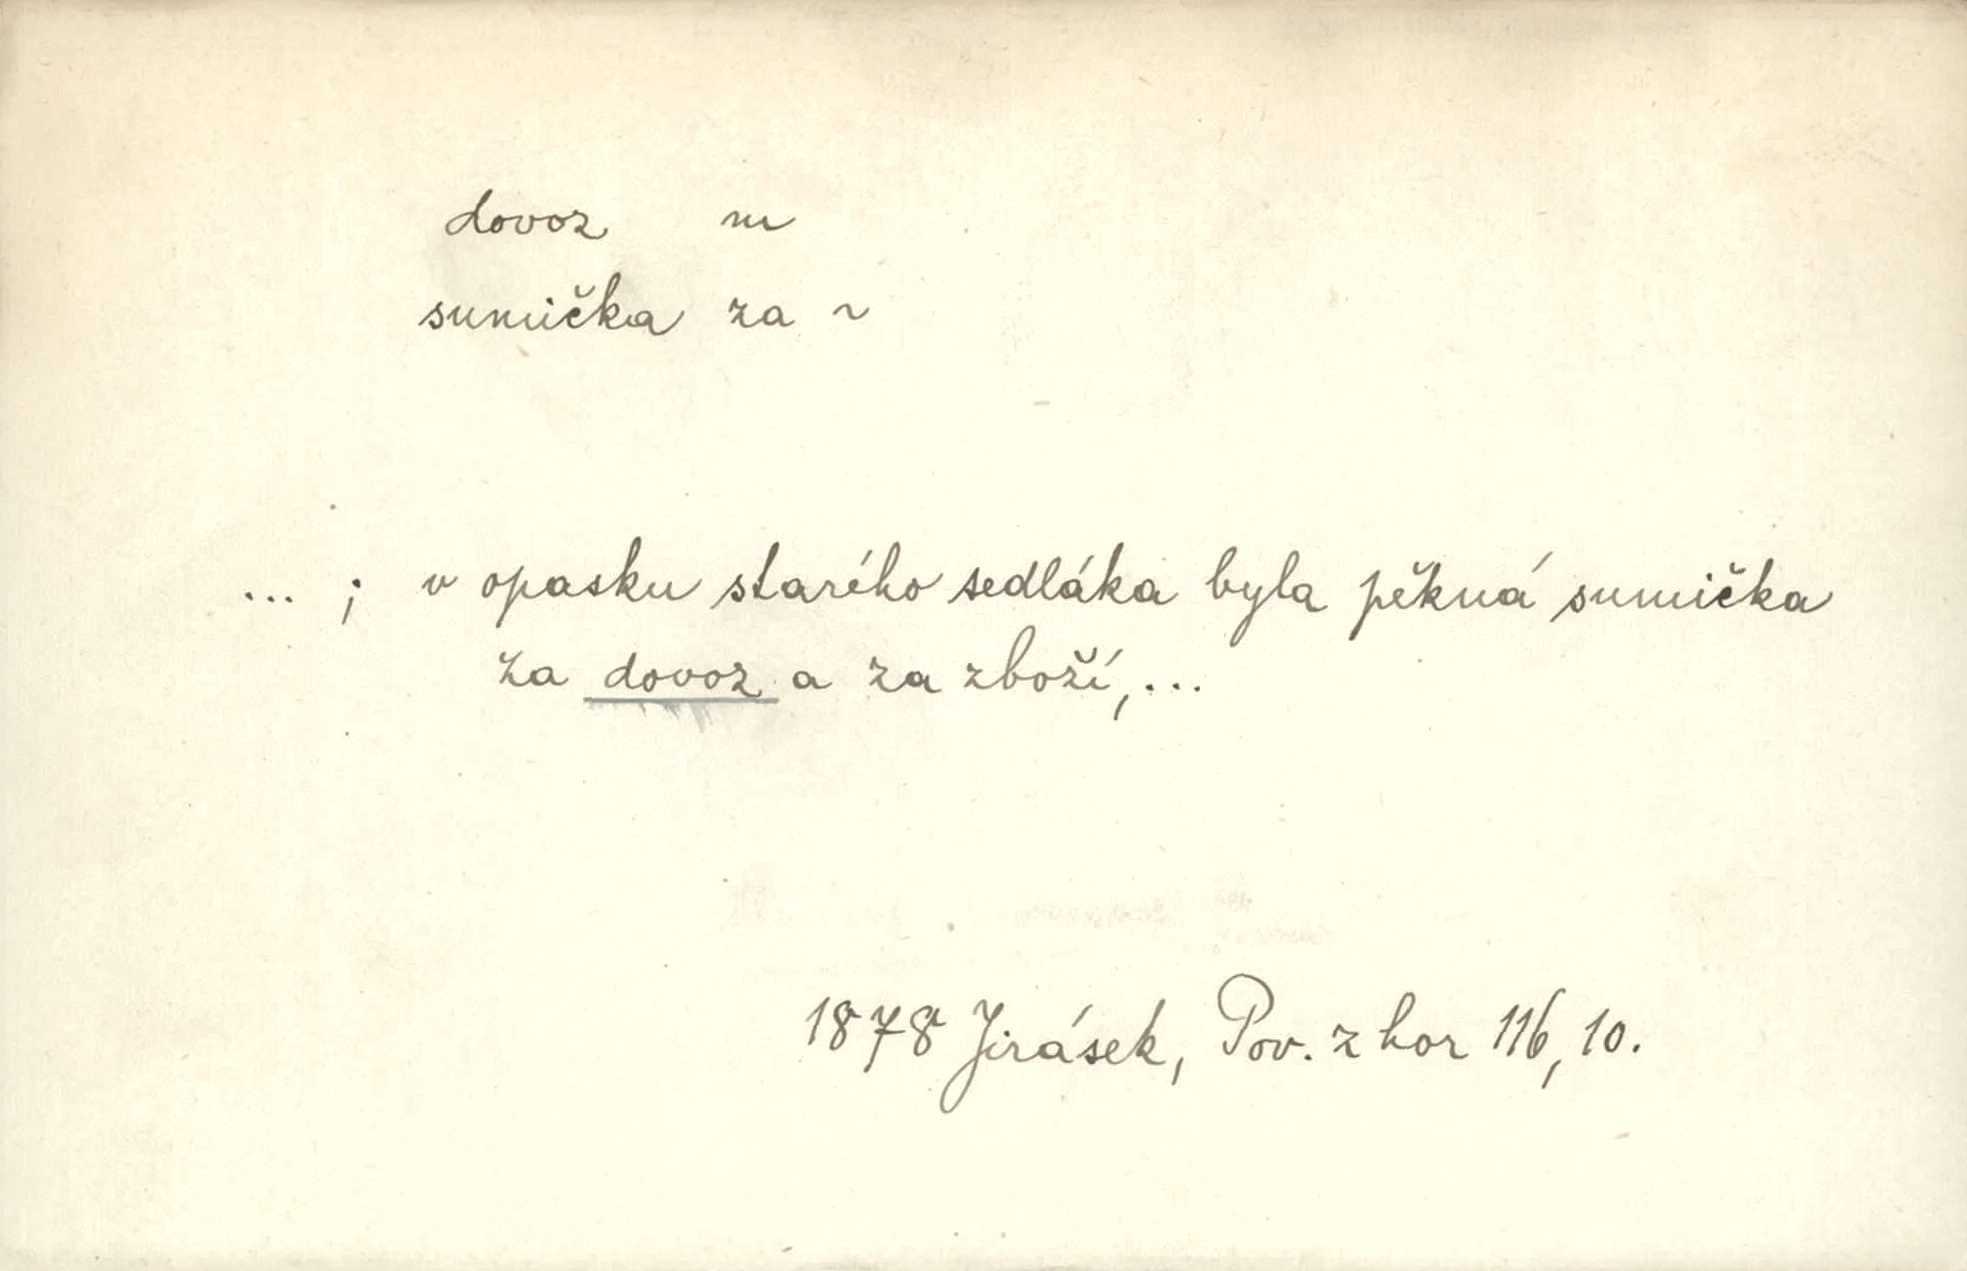 dovoz m
sumička za ~
... ; v opasku starého sedláka byla pěkná sumička
za dovoz a za zboží,...
1878 Jirásek, Pov. z hor 116,10.